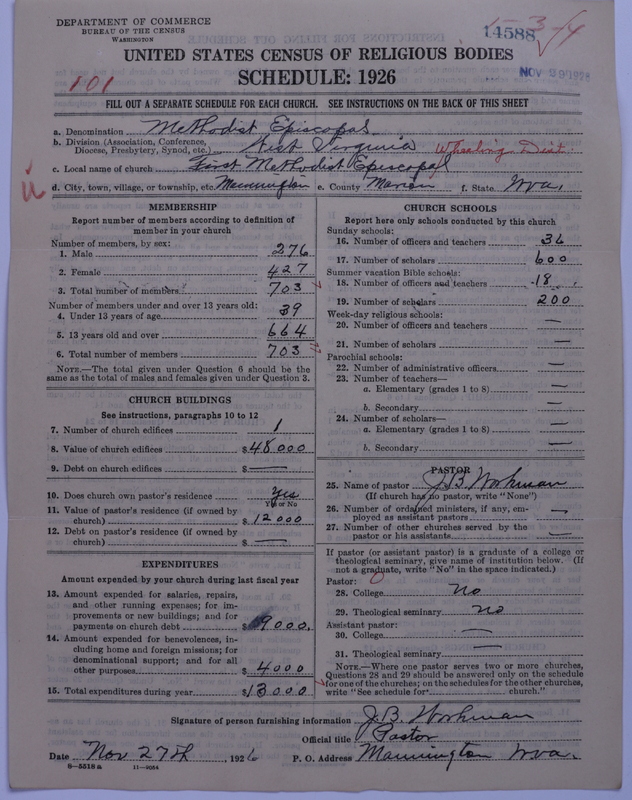 DEPARTMENT OF COMMERCE
BUREAU OF THE CENSUS
WASHINGTON
14588
NOV 29 1926
UNITED STATES CENSUS OF RELIGIOUS BODIES
SCHEDULE: 1926
101
FILL OUT A SEPARATE SCHEDULE FOR EACH CHURCH. SEE INSTRUCTIONS ON THE BACK OF THIS SHEET
a. Denomination Methodist Episcopal
b. Division (Association, Conference, Diocese, Presbytery, Synod, etc.) West Virginia Wheeling Dist
c. Local name of church First Methodist Episcopal
d. City, town, village, or township, etc. Mannington e. County Marion f. State Wva,
MEMBERSHIP
Report number of members according to definition of
member in your church
Number of members, by sex:
1. Male 276
2. Female 427
3. Total number of members 703
Number of members under and over 13 years old:
4. Under 13 years of age 39
5. 13 years old and over 664
6. Total number of members 703
NOTE.—The total given under Question 6 should be the
same as the total of males and females given under Question 3.
CHURCH BUILDINGS
See instructions, paragraphs 10 to 12
7. Number of church edifices 1
8. Value of church edifices $48000
9. Debt on church edifices $ —
10. Does church own pastor's residence Yes
Yes or No
11. Value of pastor's residence (if owned by
church) $12000
12. Debt on pastor's residence (if owned by
church) $ —
EXPENDITURES
Amount expended by your church during last fiscal year
13. Amount expended for salaries, repairs,
and other running expenses; for im-
provements or new buildings; and for
payments on church debt $9000.
14. Amount expended for benevolences, in-
cluding home and foreign missions; for
denominational support; and for all
other purposes $4000
15. Total expenditures during year $13000
CHURCH SCHOOLS
Report here only schools conducted by this church
Sunday schools:
16. Number of officers and teachers 36
17. Number of scholars 600
Summer vacation Bible schools:
18. Number of officers and teachers 18
19. Number of scholars 200
Week-day religious schools:
20. Number of officers and teachers —
21. Number of scholars —
Parochial schools:
22. Number of administrative officers —
23. Number of teachers—
a. Elementary (grades 1 to 8) —
b. Secondary —
24. Number of scholars—
a. Elementary (grades 1 to 8) —
b. Secondary —
PASTOR
25. Name of pastor J.B. Workman
(If church has no pastor, write "None")
26. Number of ordained ministers, if any, em-
ployed as assistant pastors —
27. Number of other churches served by the
pastor or his assistants —
If pastor (or assistant pastor) is a graduate of a college or
theological seminary, give name of institution below. (If
not a graduate, write "No" in the space indicated.)
Pastor:
28. College No
29. Theological seminary no
Assistant pastor:
30. College —
31. Theological seminary —
NOTE.—Where one pastor serves two or more churches,
Questions 28 and 29 should be answered only on the schedule
for one of the churches; on the schedules for the other churches,
write "See schedule for church."
Signature of person furnishing information J.B. Workman
Official title Pastor
Date Nov 27th, 1926 P. O. Address Mannington Wva.
8—5518a 11—9084